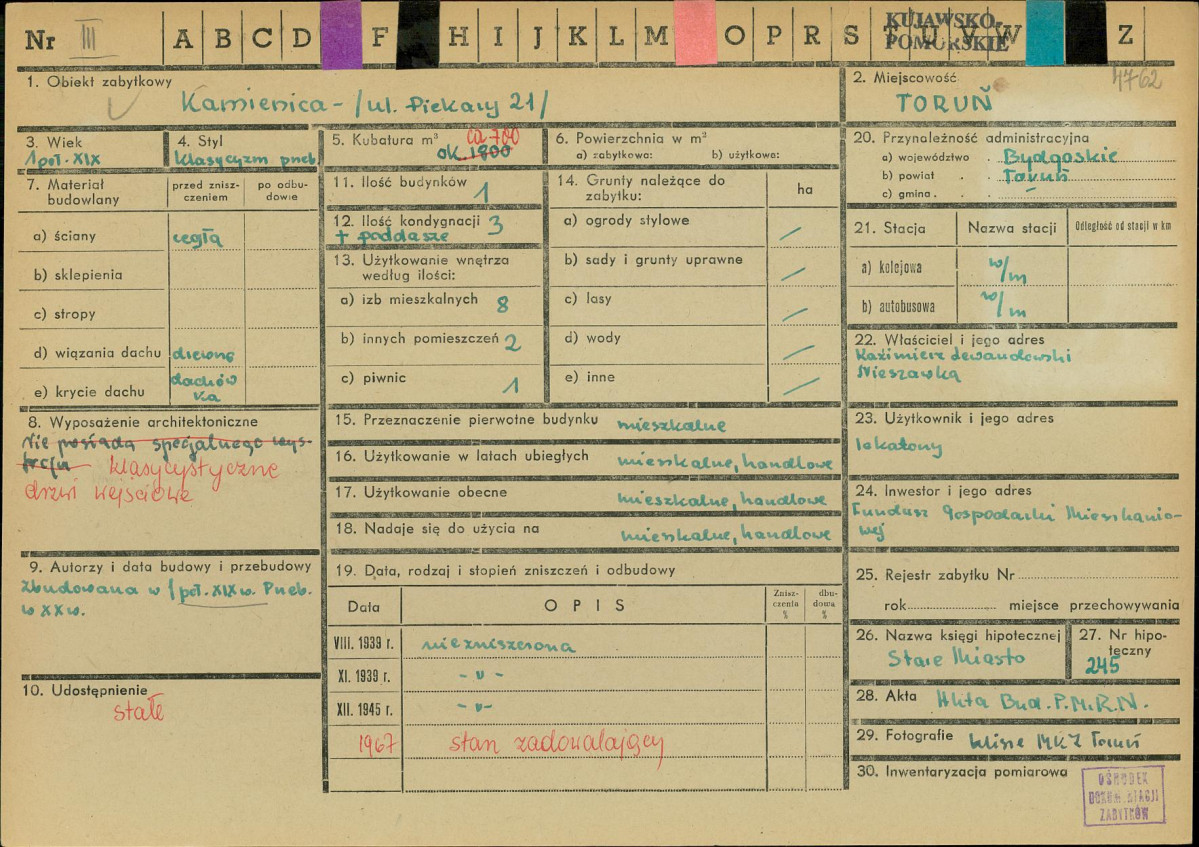 Nr III A B C D F H I J K L M O P R S T U V W Z
KUJAWSKO-
POMORSKIE
4762
1. Obiekt zabytkowy
Kamienica - /ul. Piekary 21/
2. Miejscowość
TORUŃ
3. Wiek
1 poł. XIX
4. Styl
klasycyzm przeb.
5. Kubatura m³ ca 700
ok. 1800
6. Powierzchnia w m²
a) zabytkowa: b) użytkowa:
7. Materiał budowlany
przed zniszczeniem
po odbudowie
a) ściany cegła
b) sklepienia
c) stropy
d) wiązania dachu drewno
e) krycie dachu dachówka
8. Wyposażenie architektoniczne
Nie posiada specjalnego wys-
troju klasycystyczne
drzwi wejściowe
9. Autorzy i data budowy i przebudowy
Zbudowana w 1 poł. XIX w. Przeb.
w XX w.
10. Udostępnienie
stałe
11. Ilość budynków 1
12. Ilość kondygnacji 3
+ poddasze
13. Użytkowanie wnętrza
według ilości:
a) izb mieszkalnych 8
b) innych pomieszczeń 2
c) piwnic 1
14. Grunty należące do
zabytku: ha
a) ogrody stylowe /
b) sady i grunty uprawne /
c) lasy /
d) wody /
e) inne /
15. Przeznaczenie pierwotne budynku mieszkalne
16. Użytkowanie w latach ubiegłych mieszkalne, handlowe
17. Użytkowanie obecne mieszkalne, handlowe
18. Nadaje się do użycia na mieszkalne, handlowe
19. Data, rodzaj i stopień zniszczeń i odbudowy
Data OPIS Znisz-
czenia % dbu-
dowa %
VIII. 1939 r. niezniszczona
XI. 1939 r. - " -
XII. 1945 r. - " -
1967 stan zadowalający
20. Przynależność administracyjna
a) województwo Bydgoskie
b) powiat Toruń
c) gmina
21. Stacja Nazwa stacji Odległość od stacji w km
a) kolejowa w/m
b) autobusowa w/m
22. Właściciel i jego adres
Kazimierz Lewandowski
Nieszawka
23. Użytkownik i jego adres
lokatorzy
24. Inwestor i jego adres
Fundusz Gospodarki Mieszkanio-
wej
25. Rejestr zabytku Nr
rok miejsce przechowywania
26. Nazwa księgi hipotecznej
Stare Miasto
27. Nr hipo-
teczny
245
28. Akta Akta Bud. P.M.R.N.
29. Fotografie klisze MKZ Toruń
30. Inwentaryzacja pomiarowa
OŚRODEK
DOKUMENTACJI
ZABYTKÓW